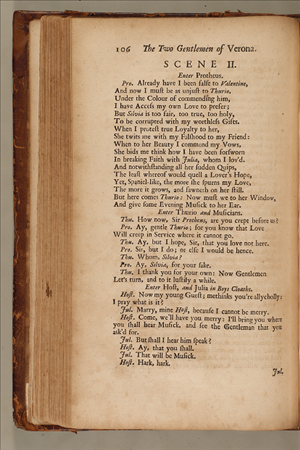 106 The Two Gentlemen of Verona.
SCENE II.
Enter Protheus.
Pro. Already have I been false to Valentine,
And now I must be as unjust to Thurio.
Under the Colour of commending him,
I have Access my own Love to prefer;
But Silvia is too fair, too true, too holy,
To be corrupted with my worthless Gifts.
When I protest true Loyalty to her,
She twits me with my Falshood to my Friend:
When to her Beauty I commend my Vows,
She bids me think how I have been forsworn
In breaking Faith with Julia, whom I lov'd.
And notwithstanding all her sudden Quips,
The least whereof would quell a Lover's Hope,
Yet, Spaniel-like, the more she spurns my Love,
The more it grows, and fawneth on her still.
But here comes Thurio: Now must we to her Window,
And give some Evening Musick to her Ear.
Enter Thurio and Musicians.
Thu. How now, Sir Protheus, are you crept before us?
Pro. Ay, gentle Thurio; for you know that Love
Will creep in Service where it cannot go.
Thu. Ay, but I hope, Sir, that you love not here.
Pro. Sir, but I do; or else I would be hence.
Thu. Whom, Silvia?
Pro. Ay, Silvia, for your sake.
Thu. I thank you for your own: Now Gentlemen
Let's turn, and to it lustily a while.
Enter Host, and Julia in Boys Cloaths.
Host. Now my young Guest; methinks you're allycholly;
I pray what is it?
Jul. Marry, mine Host, because I cannot be merry.
Host. Come, we'll have you merry: I'll bring you where
you shall hear Musick, and see the Gentleman that you
ask'd for.
Jul. But shall I hear him speak?
Host. Ay, that you shall.
Jul. That will be Musick.
Host. Hark, hark.
Jul.